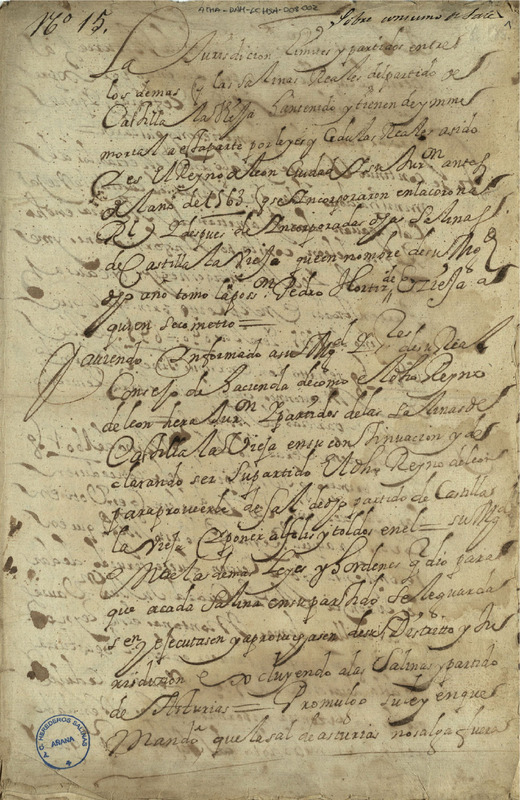 AMA-DAH-ACHSA-008-002
Nº 15.
Sobre consumo de Sal
La Jurisdicion limites y partidos entre
los demas y las salinas Reales del partido de
Castilla la Vieja han tenido y tienen de ynme
morial a esta parte por leyes y Cedulas Reales a sido
y es El Reyno de leon Ciudad y su Jur.on antes
del año de 1563. q se Incorporaron en la corona
Rl y despues de Incorporadas dhas Salinas
de Castilla la Vieja quien en nombre de su Mg.d
dho año tomo la poss.on Pedro
quien se cometio =
Y aviendo Informado a su Mg.d y
Consejo de hacienda de como El dho Reyno
de leon hera Jur.on y partidos de las Salinas de
Castilla la Vieja en su continuacion y de
clarando ser su partido El dho Reyno de leon
para proveerle de Sal de dho partido de Castilla
la Vieja y poner alfolis y toldos en el = su Mg.d
las demas Leyes y hordenes q dio para
que a cada Salina en su partido se le guarda
sen y executasen y aprovechasen de sus Distrito y Ju
risdicion excluyendo a las Salinas y partido
de Asturias = Promulgo su ley en que
Mando que la sal de asturias no salga fuera
A.G. HEREDEROS SALINAS
ARANA